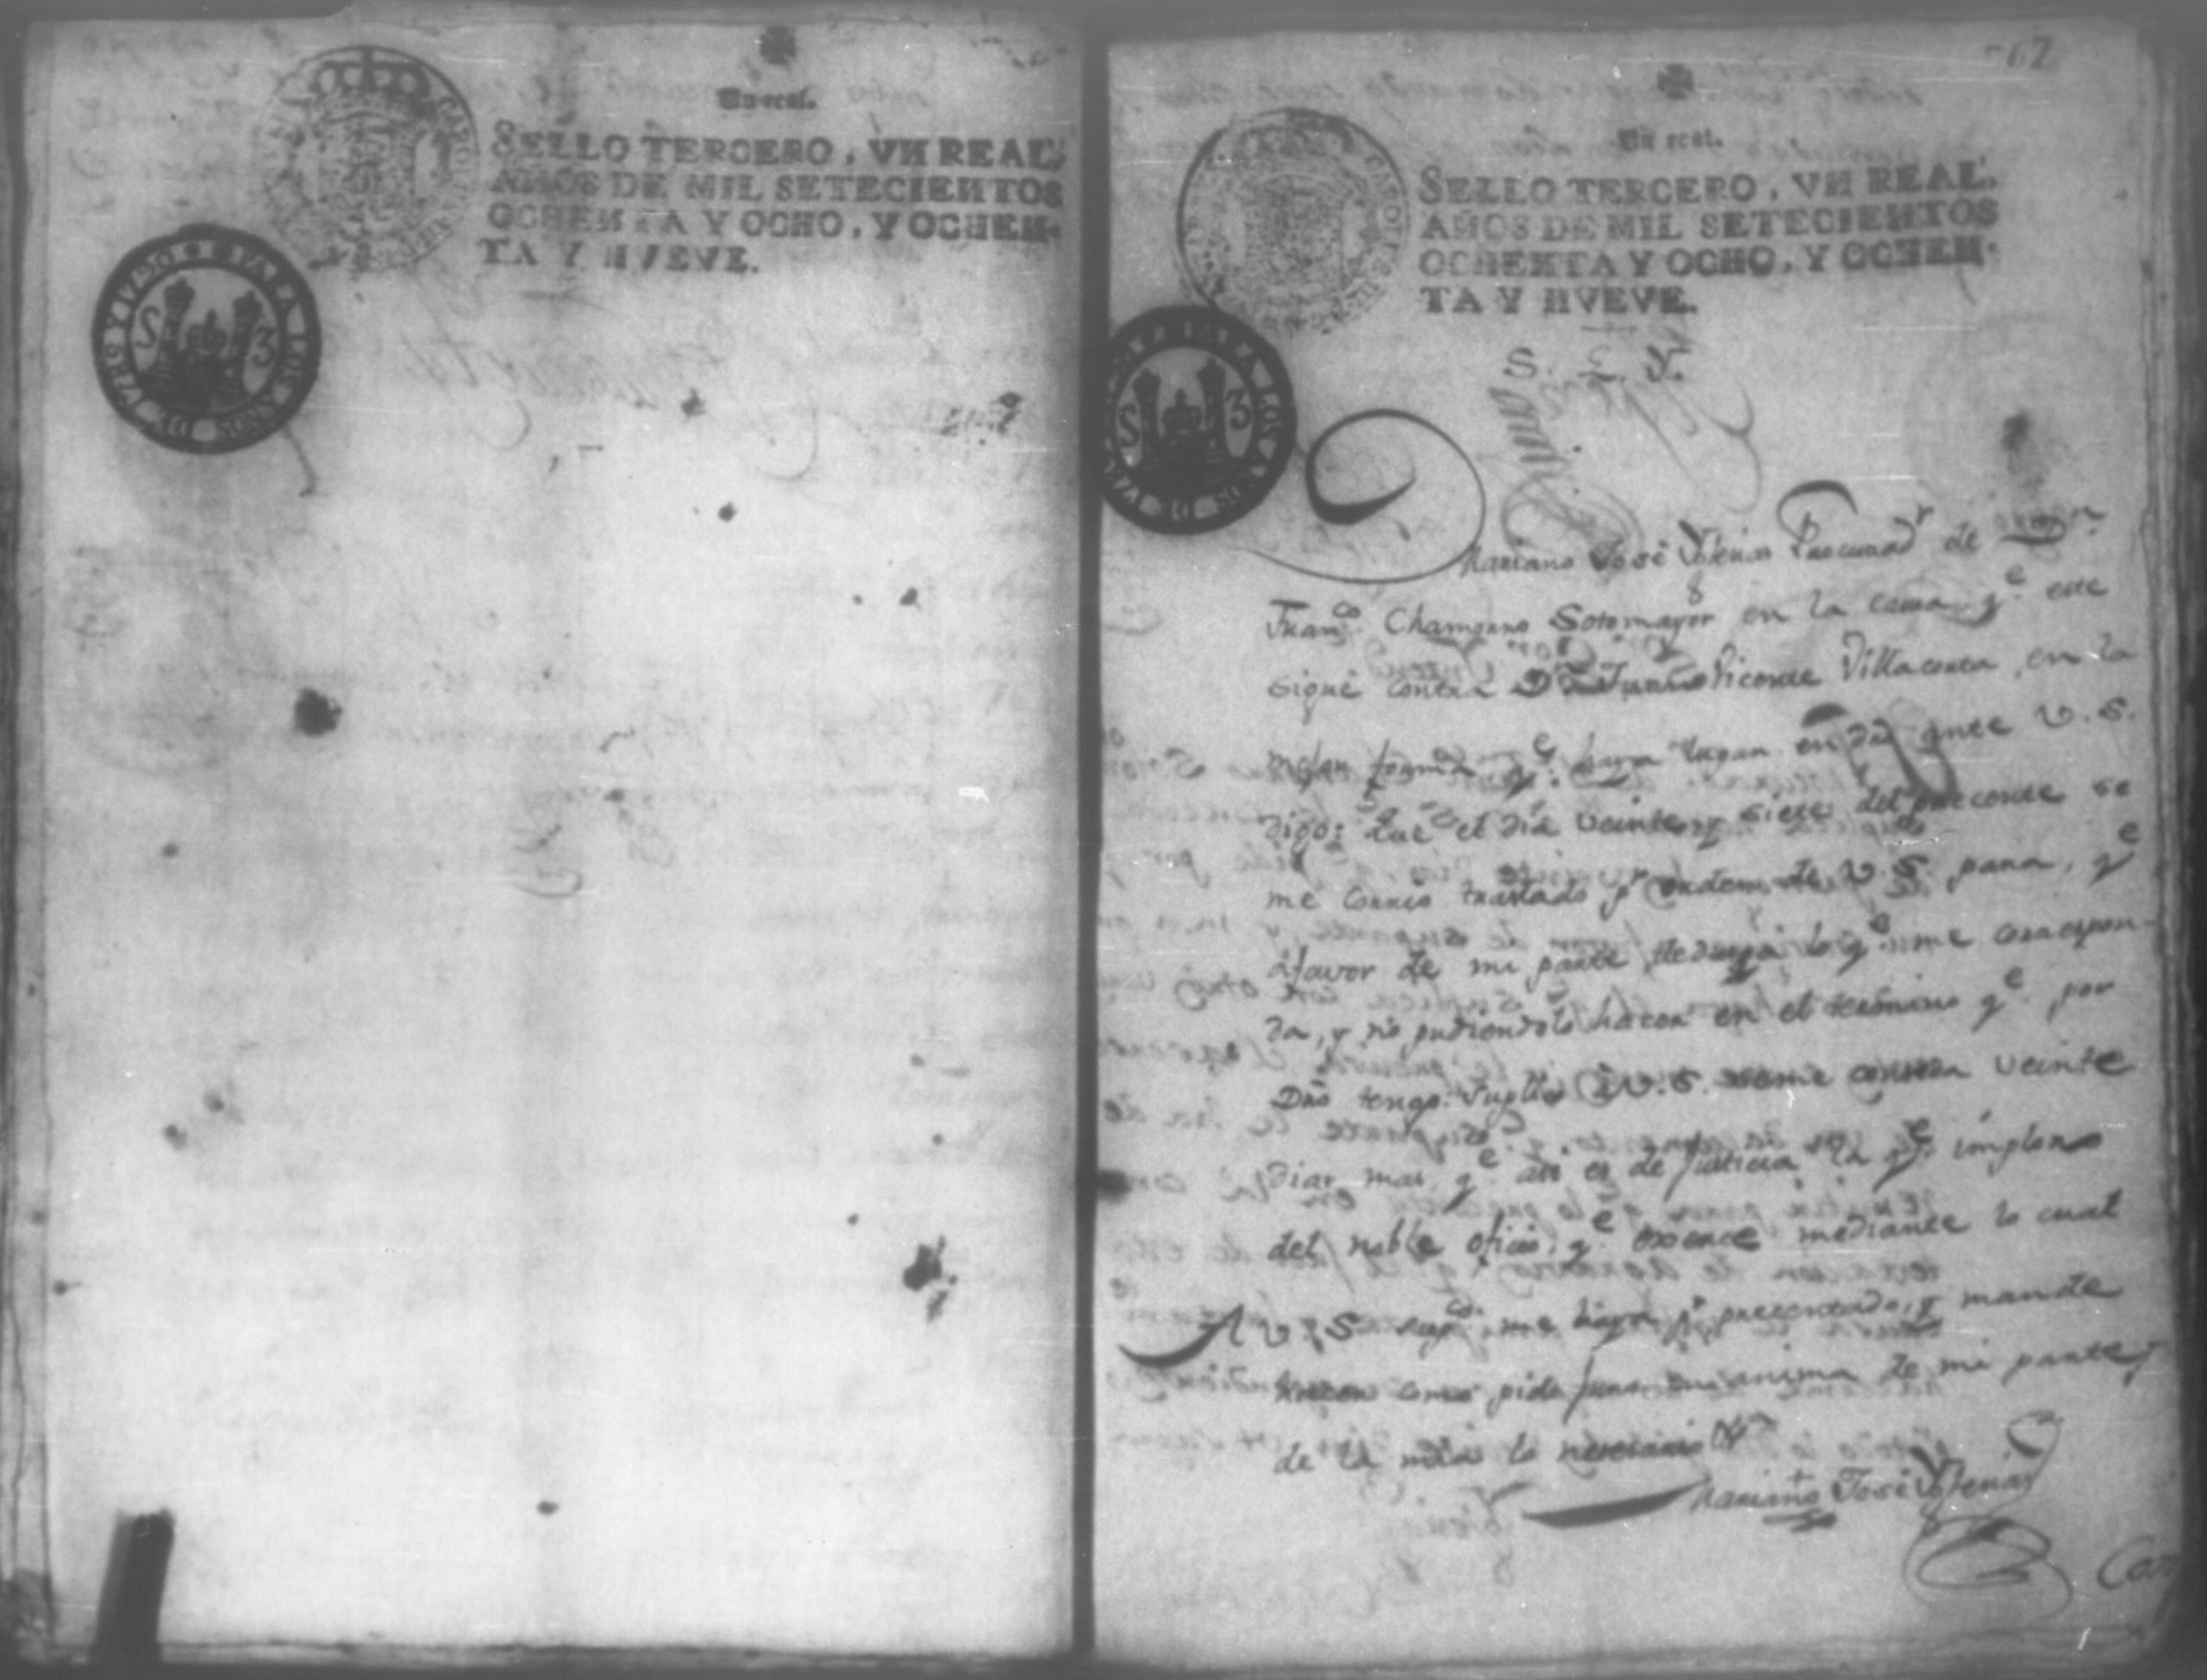 Un real.
SELLO TERCERO, VN REAL,
AÑOS DE MIL SETECIENTOS
OCHENTA Y OCHO, Y OCHEN-
TA Y NVEVE.
PARA LOS
S 3
62
Un real.
SELLO TERCERO, VN REAL,
AÑOS DE MIL SETECIENTOS
OCHENTA Y OCHO, Y OCHEN-
TA Y NVEVE.
PARA LOS
S 3
Mariano José Procurad.r de
Fran.co Chamorro Sotomayor en la causa q.e este
sigue contra Dn Vicente Villa en la
mejor forma q.e haya lugar en dro ante V. S.
digo: Que el dia veinte y siete del precente se
me corrio traslado p.r orden de V. S. para, q.e
á favor de mi parte deduzga lo q.e me correspon-
da, y no pudiendolo hacer en el termino q.e por
Dro tengo. Suplico á V. S. veinte
dias mas, q.e asi es de justicia la q.e imploro
del noble oficio, q.e exerce mediante lo cual
A V. S. sup.co me haya p.r precentado, y mande
hacer como pido juro en anima de mi parte, y
de la mia lo necesario
Mariano José